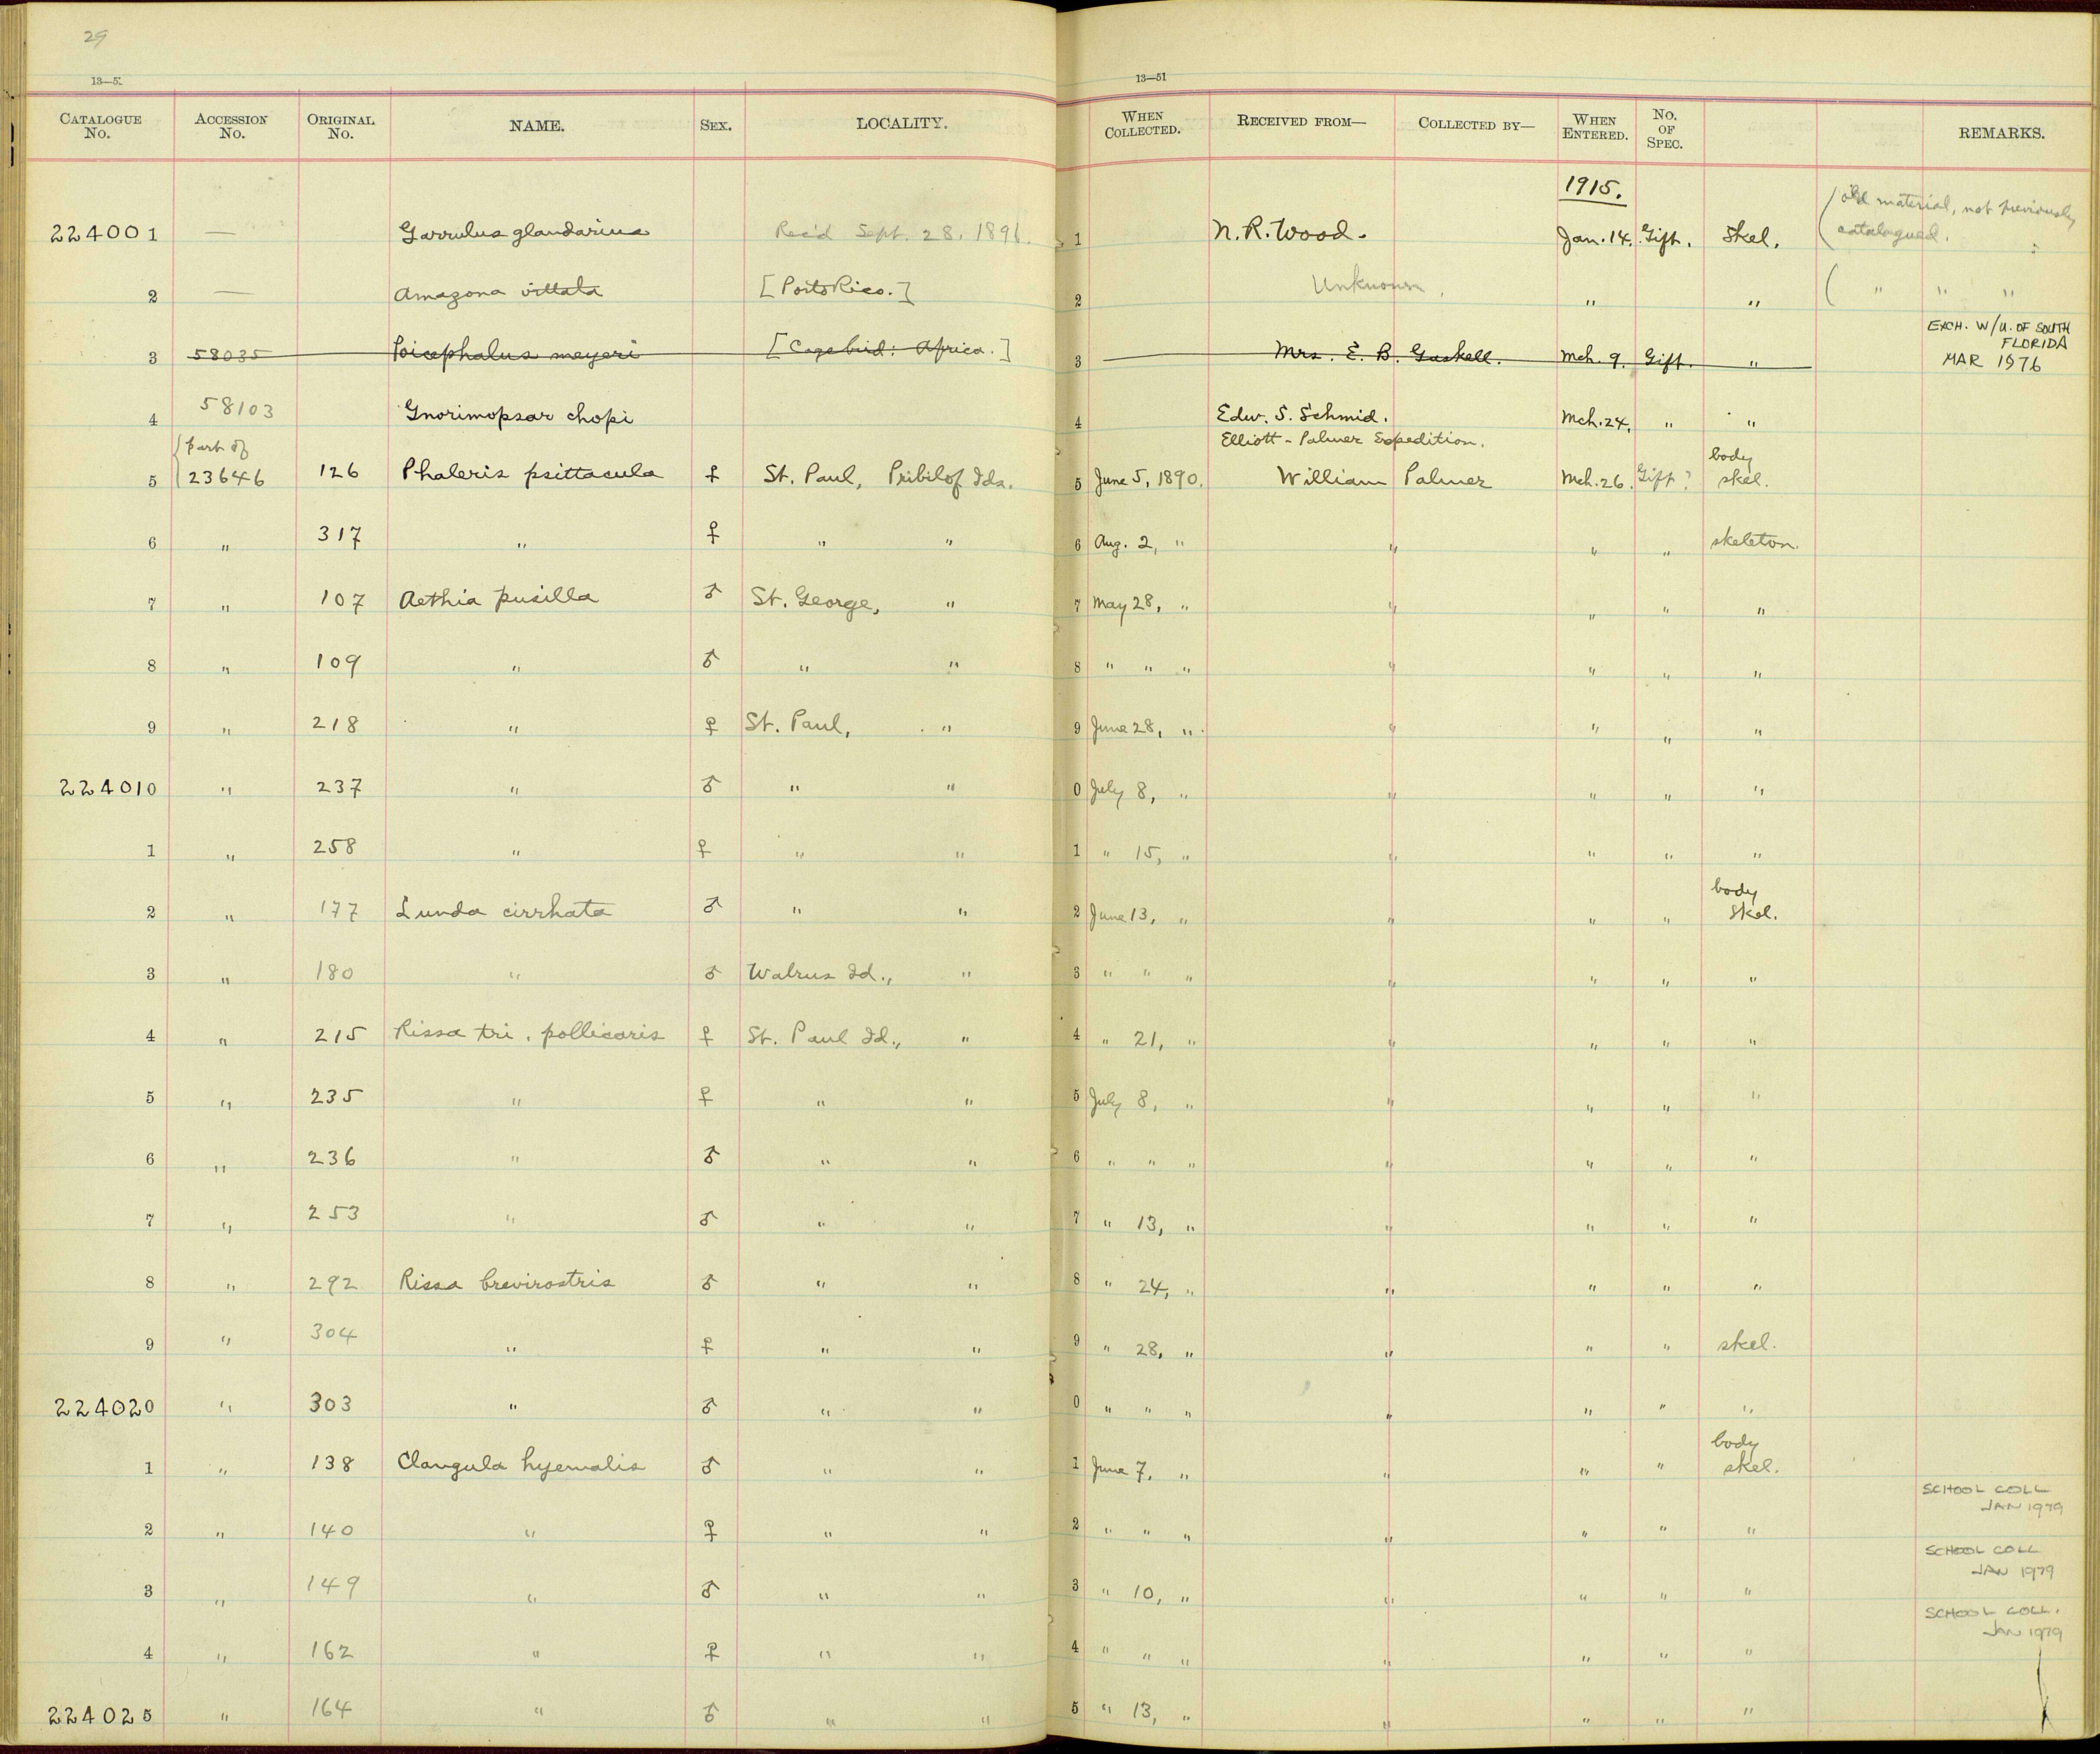 29
13—5
13—51
CATALOGUE No. ACCESSION No. ORIGINAL No. NAME. SEX. LOCALITY. WHEN COLLECTED. RECEIVED FROM— COLLECTED BY— WHEN ENTERED. No. OF SPEC. REMARKS.
1915.
224001 — Garrulus glandarius Rec'd Sept. 28, 1891. 1 N. R. Wood. Jan. 14. Gift. Skel. (old material, not previously catalogued.
2 — Amazona vittata [Porto Rico.] 2 Unknown. " " ( " " "
3 58035 Poicephalus meyeri [Cage bird: Africa.] 3 Mrs. E. B. Gaskell. Mch. 9. Gift. " EXCH. W/U. OF SOUTH FLORIDA MAR 1976
4 58103 Gnorimopsar chopi 4 Edw. S. Schmid. Mch. 24. " "
Elliott-Palmer Expedition.
5 {part of 23646 126 Phaleris psittacula ♀ St. Paul, Pribilof Ids. 5 June 5, 1890. William Palmer Mch. 26. Gift? body skel.
6 " 317 " ♀ " " 6 Aug. 2, " " " " skeleton.
7 " 107 Aethia pusilla ♂ St. George, " 7 May 28, " " " " "
8 " 109 " ♂ " " 8 " " " " " " "
9 " 218 " ♀ St. Paul, " 9 June 28, " " " " "
224010 " 237 " ♂ " " 0 July 8, " " " " "
1 " 258 " ♀ " " 1 " 15, " " " " "
2 " 177 Lunda cirrhata ♂ " " 2 June 13, " " " " body Skel.
3 " 180 " ♂ Walrus Id., " 3 " " " " " " "
4 " 215 Rissa tri. pollicaris ♀ St. Paul Id., " 4 " 21, " " " " "
5 " 235 " ♀ " " 5 July 8, " " " " "
6 " 236 " ♂ " " 6 " " " " " " "
7 " 253 " ♂ " " 7 " 13, " " " " "
8 " 292 Rissa brevirostris ♂ " " 8 " 24, " " " " "
9 " 304 " ♀ " " 9 " 28, " " " " skel.
224020 " 303 " ♂ " " 0 " " " " " " "
1 " 138 Clangula hyemalis ♂ " " 1 June 7, " " " " body skel.
2 " 140 " ♀ " " 2 " " " " " " " SCHOOL COLL JAN 1979
3 " 149 " ♂ " " 3 " 10, " " " " " SCHOOL COLL JAN 1979
4 " 162 " ♀ " " 4 " " " " " " " SCHOOL COLL. JAN 1979
224025 " 164 " ♂ " " 5 " 13, " " " " "